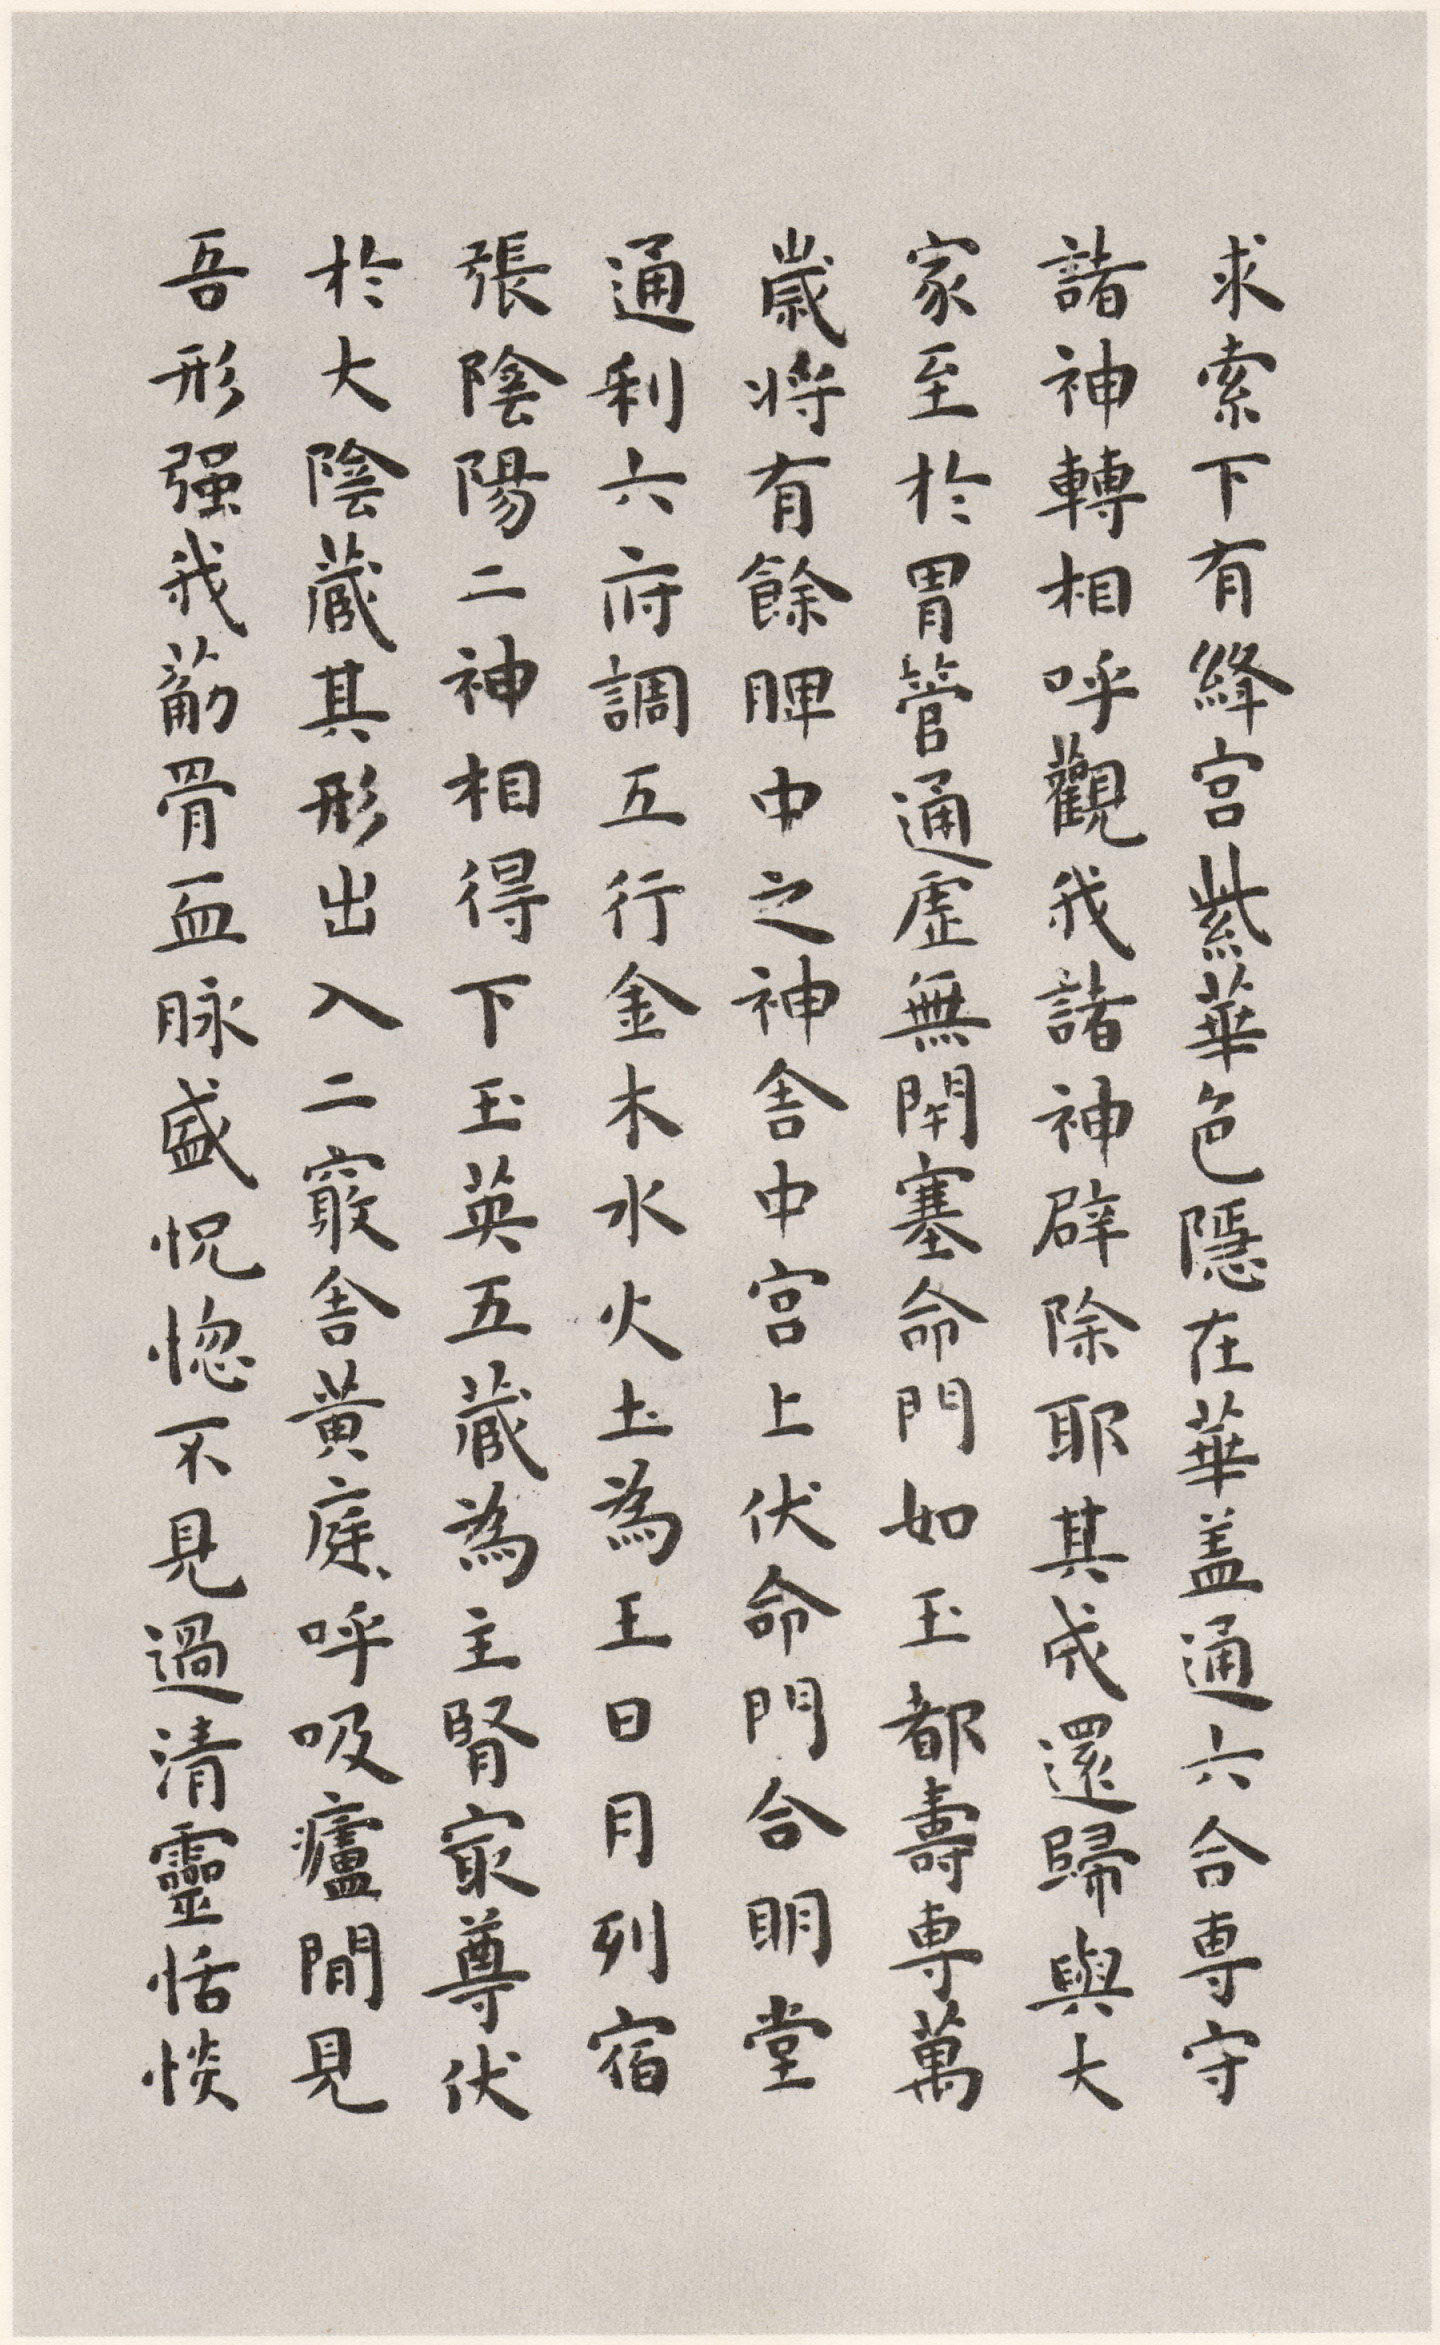 求索下有絳宮紫華色隱在華盖通六合専守
諸神轉相呼觀我諸神辟除耶其成還歸與大
家至於胃管通虛無閇塞命門如玉都壽専萬
歲將有餘脾中之神舎中宮上伏命門合明堂
通利六府調五行金木水火土為王日月列宿
張陰陽二神相得下玉英五藏為主腎㝡尊伏
於大陰藏其形出入二竅舎黃庭呼吸廬間見
吾形强我筋骨血脉盛怳惚不見過清靈恬惔